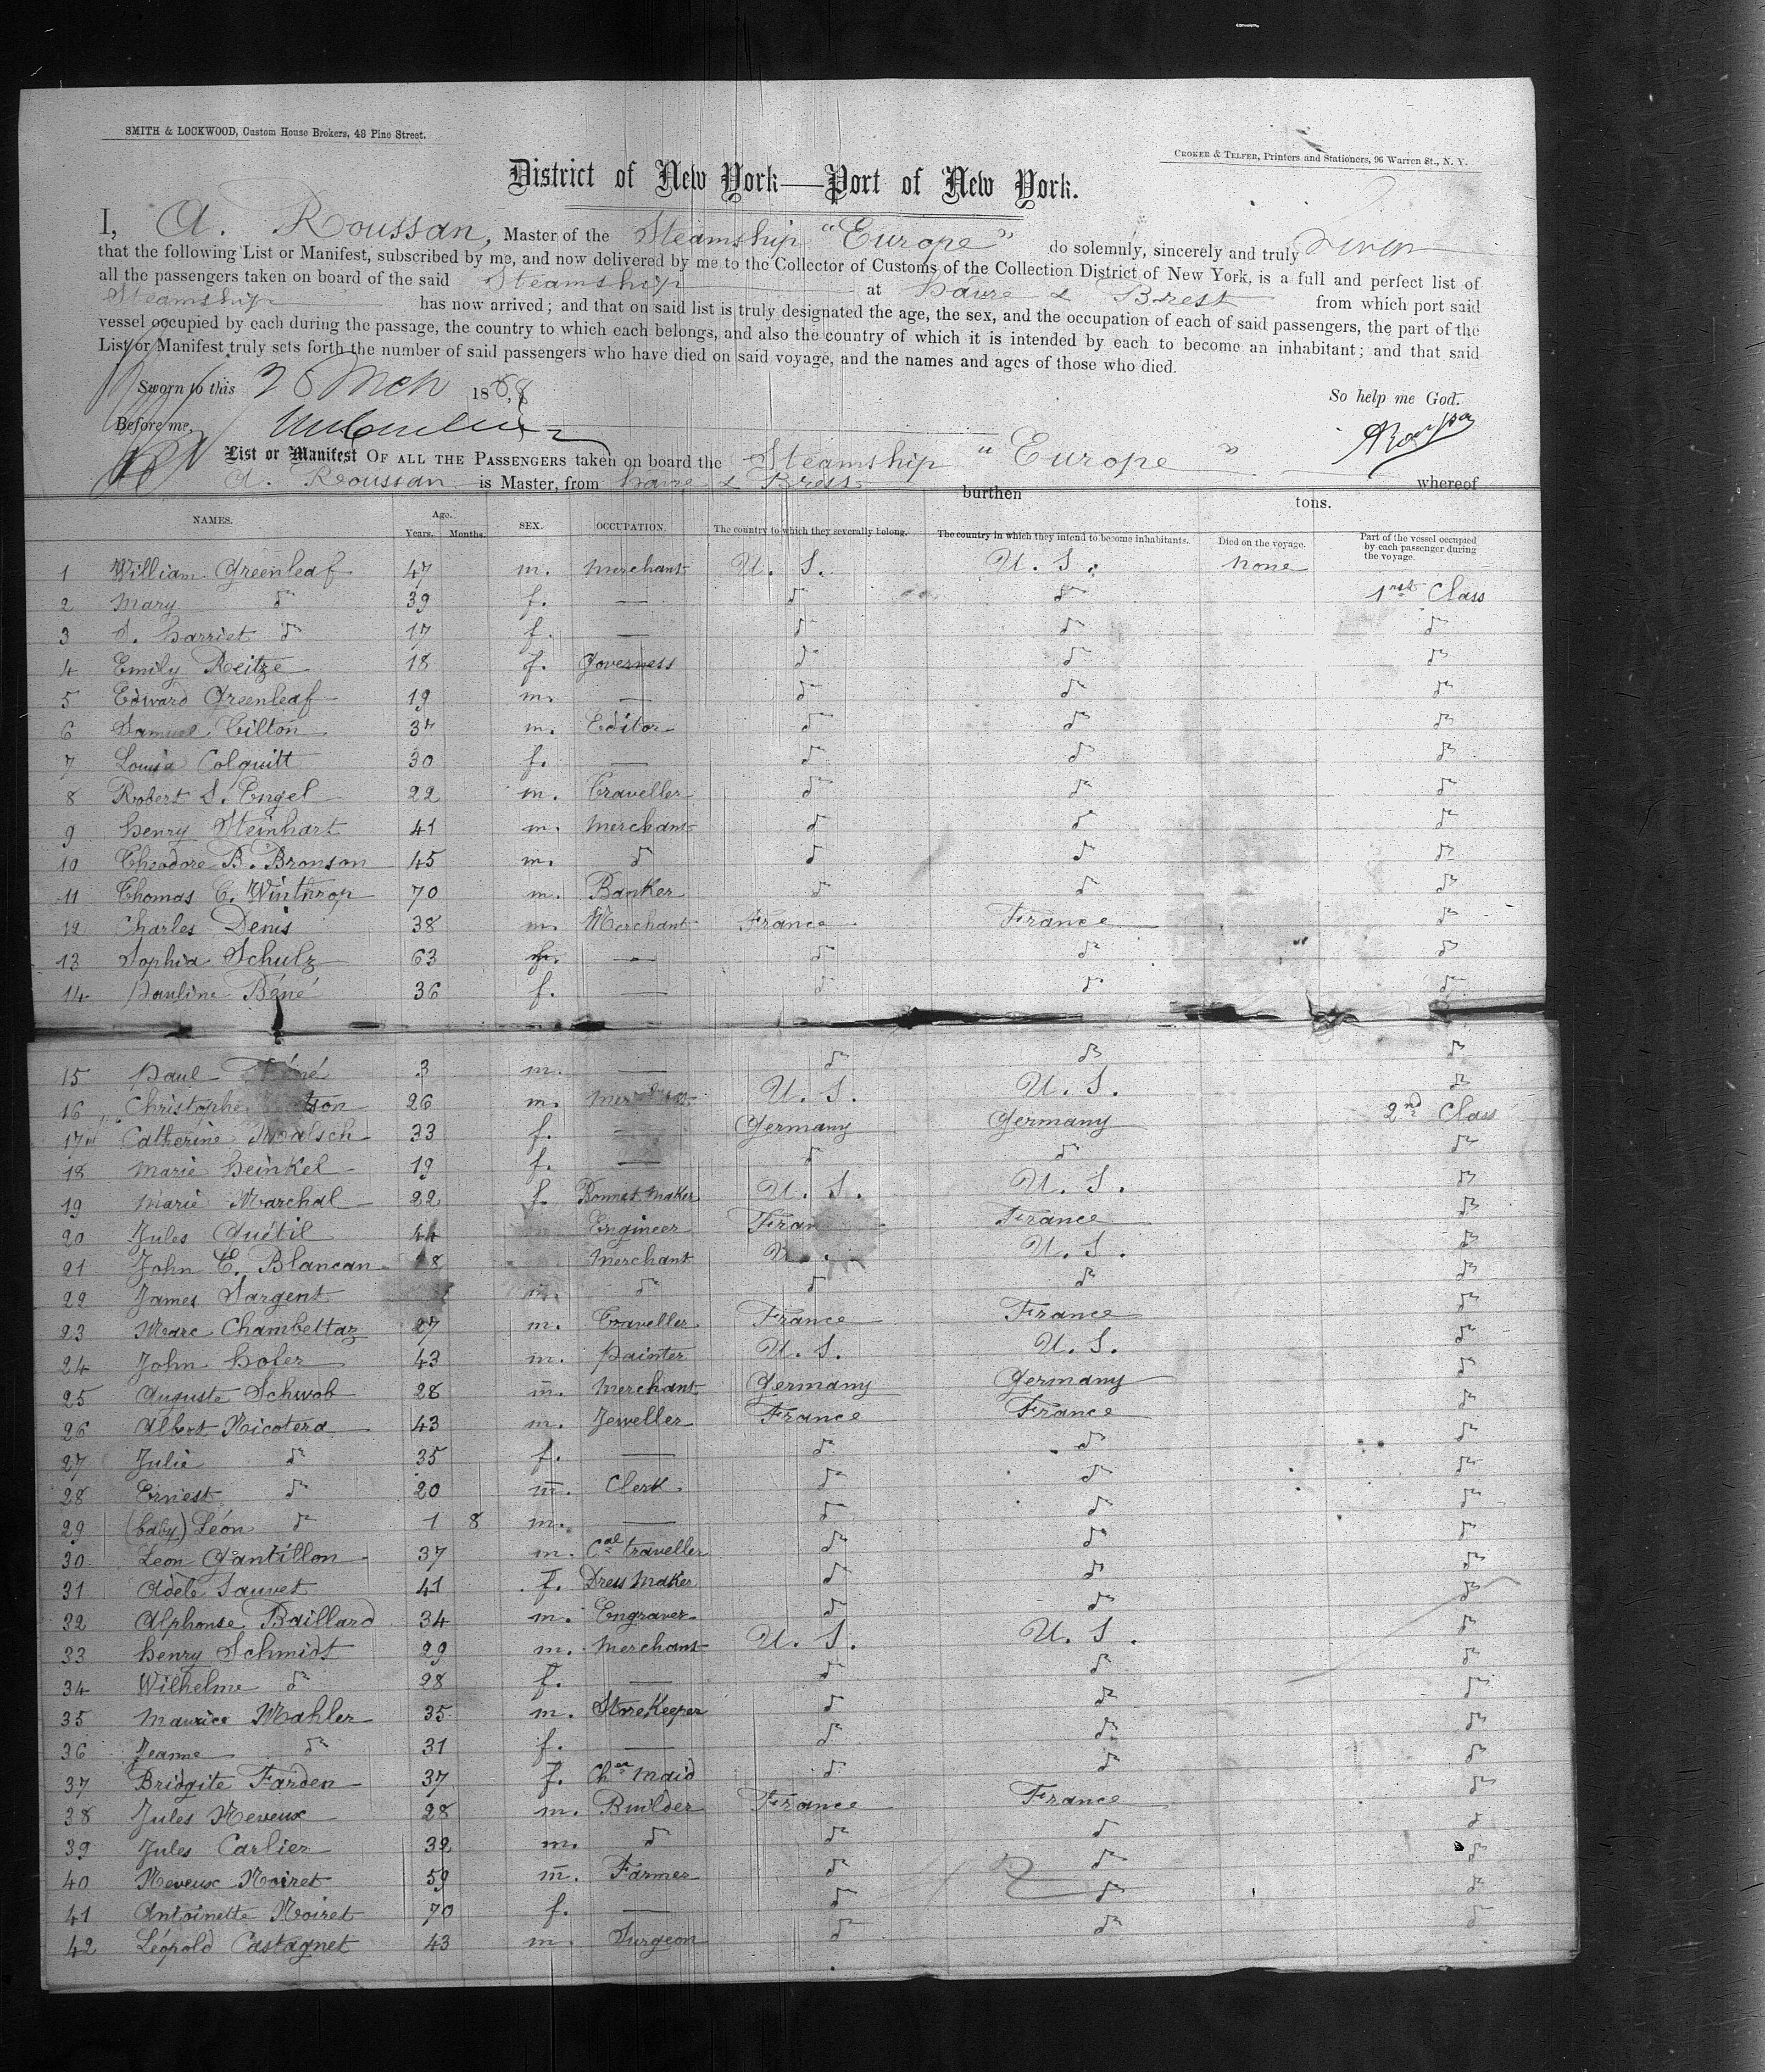 SMITH & LOCKWOOD, Custom House Brokers, 48 Pine Street.
CROKER & TELFER, Printers and Stationers, 96 Warren St., N. Y.
District of New York—Port of New York.
I, A. Roussan, Master of the Steamship "Europe" do solemnly, sincerely and truly swear
that the following List or Manifest, subscribed by me, and now delivered by me to the Collector of Customs of the Collection District of New York, is a full and perfect list of
all the passengers taken on board of the said Steamship at Havre & Brest from which port said
Steamship has now arrived; and that on said list is truly designated the age, the sex, and the occupation of each of said passengers, the part of the
vessel occupied by each during the passage, the country to which each belongs, and also the country of which it is intended by each to become an inhabitant; and that said
List or Manifest truly sets forth the number of said passengers who have died on said voyage, and the names and ages of those who died.
Sworn to this Mch 1868 So help me God.
Before me, ARoussan
List or Manifest OF ALL THE PASSENGERS taken on board the Steamship "Europe" whereof
A. Roussan is Master, from Havre & Brest burthen tons.
NAMES. Age. Years. Months. SEX. OCCUPATION. The country to which they severally belong. The country in which they intend to become inhabitants. Died on the voyage. Part of the vessel occupied by each passenger during the voyage.
1 William Greenleaf 47 m. Merchant U. S. U. S. None
2 Mary do 39 f. — do do 1rst Class
3 S. Harriet do 17 f. — do do do
4 Emily Reitze 18 f. Governess do do do
5 Edward Greenleaf 19 m. — do do do
6 Samuel Tilton 34 m. Editor do do do
7 Louisa Colquitt 30 f. — do do do
8 Robert S. Engel 22 m. Traveller do do do
9 Henry Steinhart 41 m. Merchant do do do
10 Theodore B. Bronson 45 m. do do do do
11 Thomas C. Winthrop 70 m. Banker do do do
12 Charles Denis 38 m. Merchant France France do
13 Sophia Schulz 63 f. — do do do
14 Pauline Béné 36 f. — do do do
15 Paul Béné 3 m. — do do do
16 Christophe 26 m. U. S. U. S. do
17 Catherine Walsch 33 f. — Germany Germany 2nd Class
18 Marie Heinkel 19 f. — do do do
19 Marie Marchal 22 f. Bonnet Maker U. S. U. S. do
20 Jules Quétil 44 Engineer France France do
21 John E. Blancan Merchant U. S. do
22 James Sargent m. do do do do
23 Marc Chambettaz 27 m. Traveller France France do
24 John Hofer 43 m. Painter U. S. U. S. do
25 Auguste Schwob 28 m. Merchant Germany Germany do
26 Albert Nicotera 43 m. Jeweller France France do
27 Julie do 35 f. — do do do
28 Ernest do 20 m. Clerk do do do
29 (baby) Léon do 1 8 m. — do do do
30 Leon Gantillon 37 m. Cal traveller do do do
31 Adele Sauvet 41 f. Dress Maker do do do
32 Alphonse Baillard 34 m. Engraver do do do
33 Henry Schmidt 29 m. Merchant U. S. U. S. do
34 Wilhelme do 28 f. — do do do
35 Maurice Mahler 35 m. Store Keeper do do do
36 Jeanne do 31 f. — do do do
37 Bridgite Farden 37 f. Cher Maid do do do
38 Jules Neveux 28 m. Builder France France do
39 Jules Carlier 32 m. do do do do
40 Neveux Noiret 59 m. Farmer do do do
41 Antoinette Noiret 70 f. — do do do
42 Léopold Castagnet 43 m. Surgeon do do do